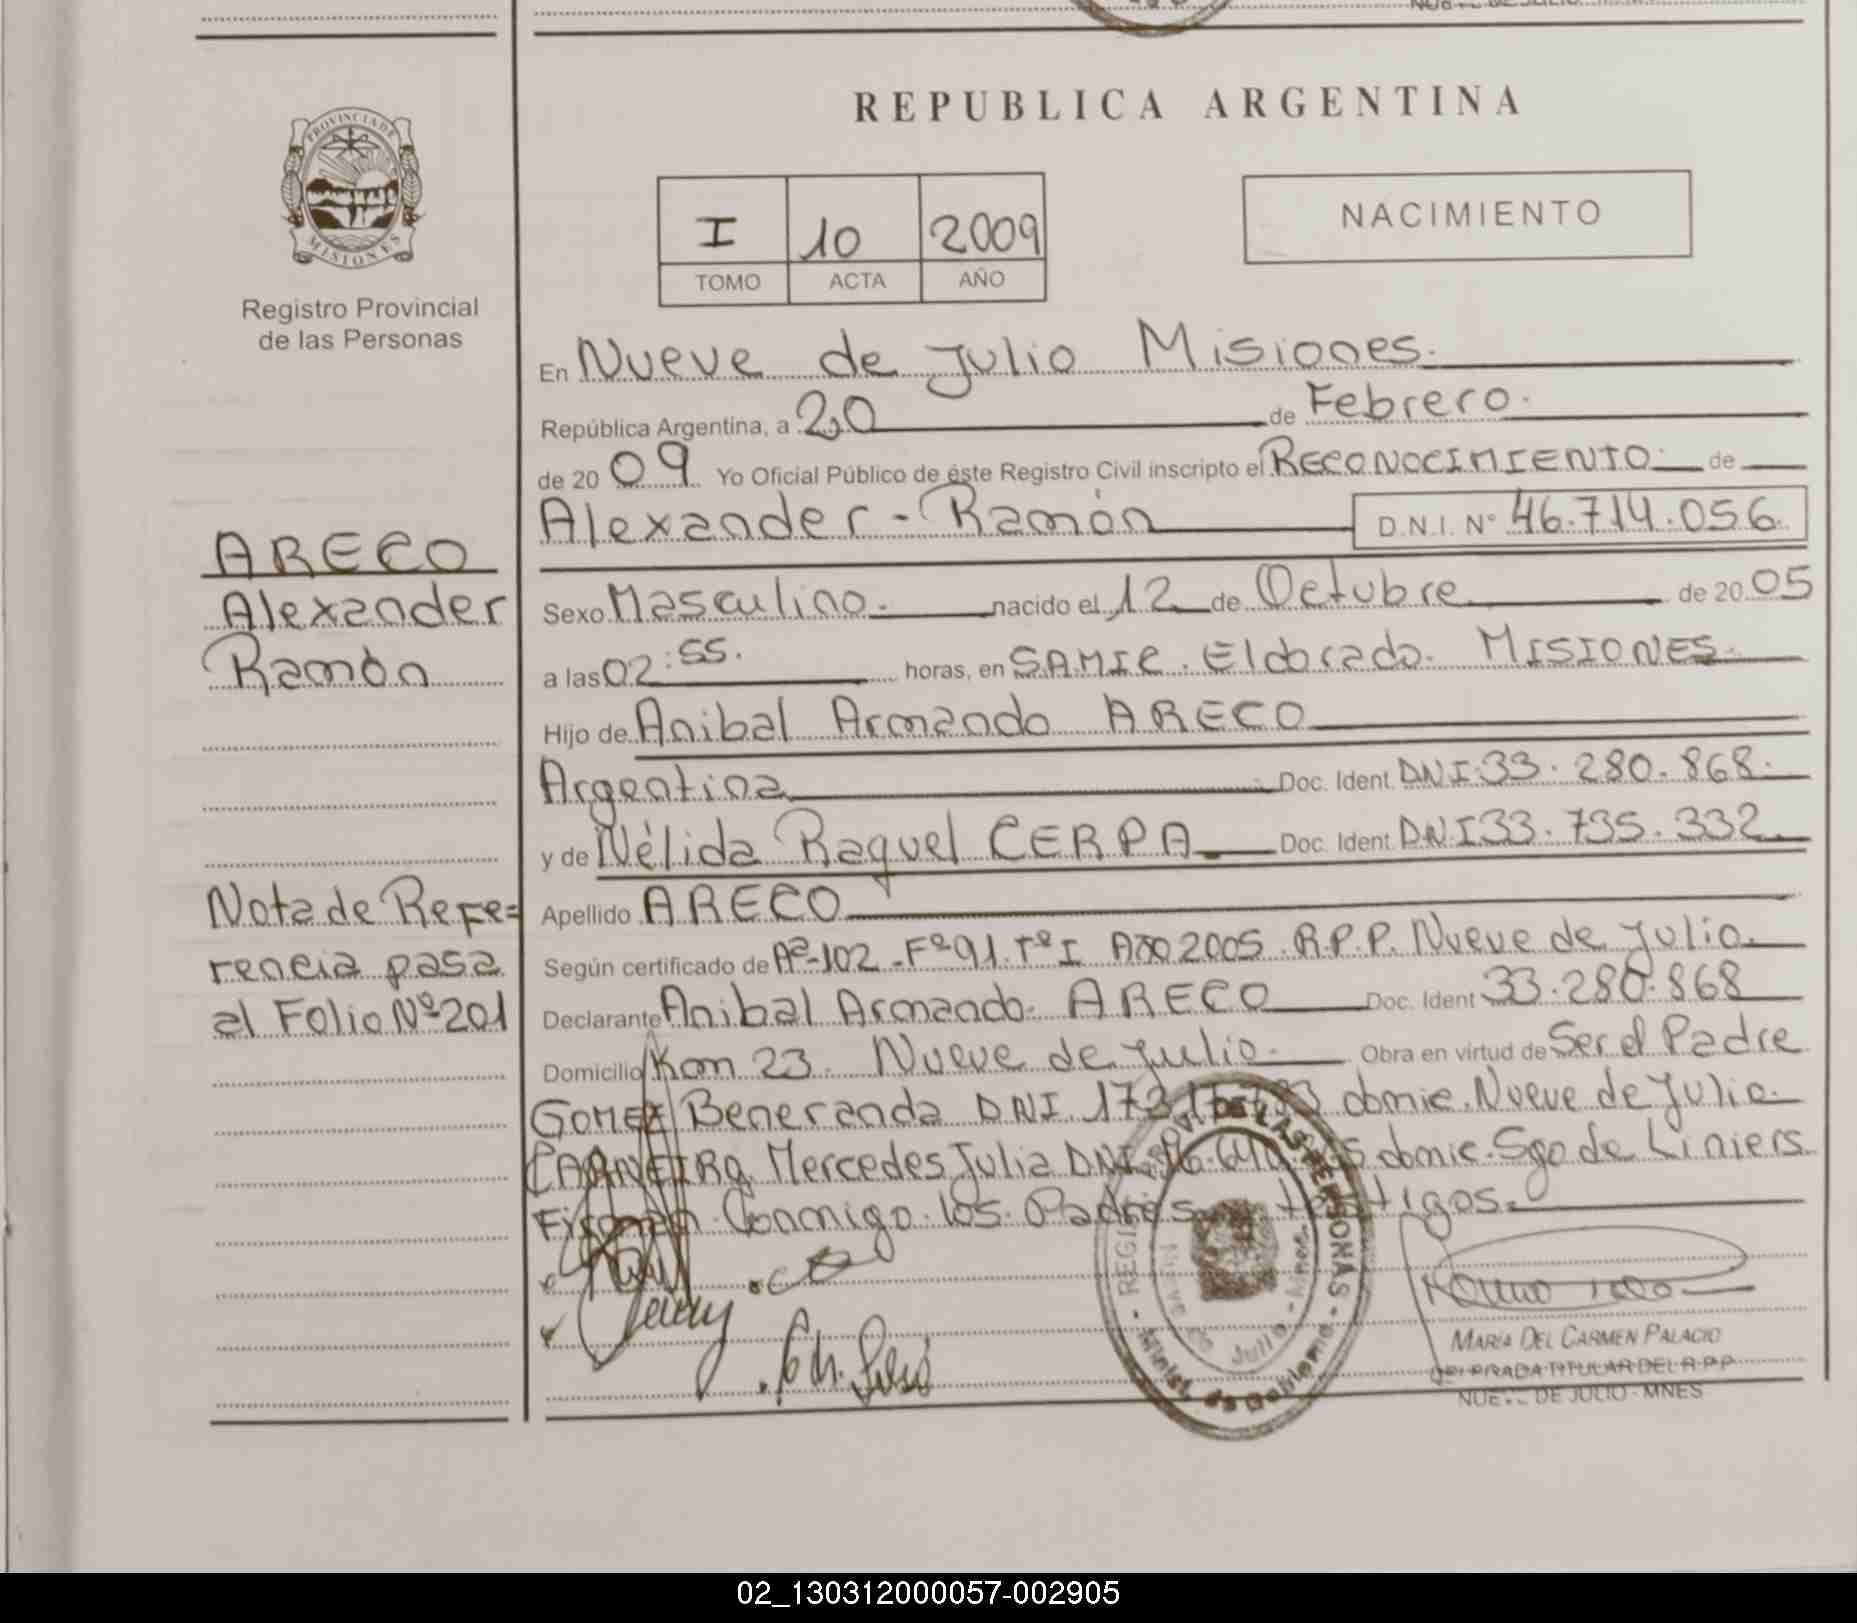 REPUBLICA ARGENTINA
PROVINCIA DE
MISIONES
Registro Provincial
de las Personas
I 10 2009
TOMO ACTA AÑO
NACIMIENTO
En Nueve de Julio Misiones.
República Argentina, a 20 de Febrero.
de 20 09 Yo Oficial Público de éste Registro Civil inscripto el RECONOCIMIENTO de
Alexander - Ramón D.N.I. N° 46.714.056
ARECO
Alexander
Ramón
Sexo Masculino. nacido el 12 de Octubre de 20 05
a las 02:55. horas, en SAMIC. Eldorado. MISIONES.
Hijo de Anibal Armando ARECO
Argentina Doc. Ident. DNI 33.280.868.
y de Nélida Raquel CERPA Doc. Ident. DNI 33.735.332
Nota de Refe=
rencia pasa
al Folio Nº 201
Apellido ARECO
Según certificado de Aº-102-Fº91.Tº I Año 2005. R.P.P. Nueve de Julio.
Declarante Anibal Armando. ARECO Doc. Ident 33.280.868
Domicilio Km 23. Nueve de Julio. Obra en virtud de Ser el Padre
GOMEZ Beneranda DNI domic. Nueve de Julio.
CARNEIRO Mercedes Julia DNI domic. Sgo de Liniers.
Firman Conmigo los Padres testigos.
REGISTRO DE LAS PERSONAS
Minist. de Gobierno
Julio - Mnes.
MARIA DEL CARMEN PALACIO
TITULAR DEL R.P.P.
DE JULIO - MNES
02_130312000057-002905